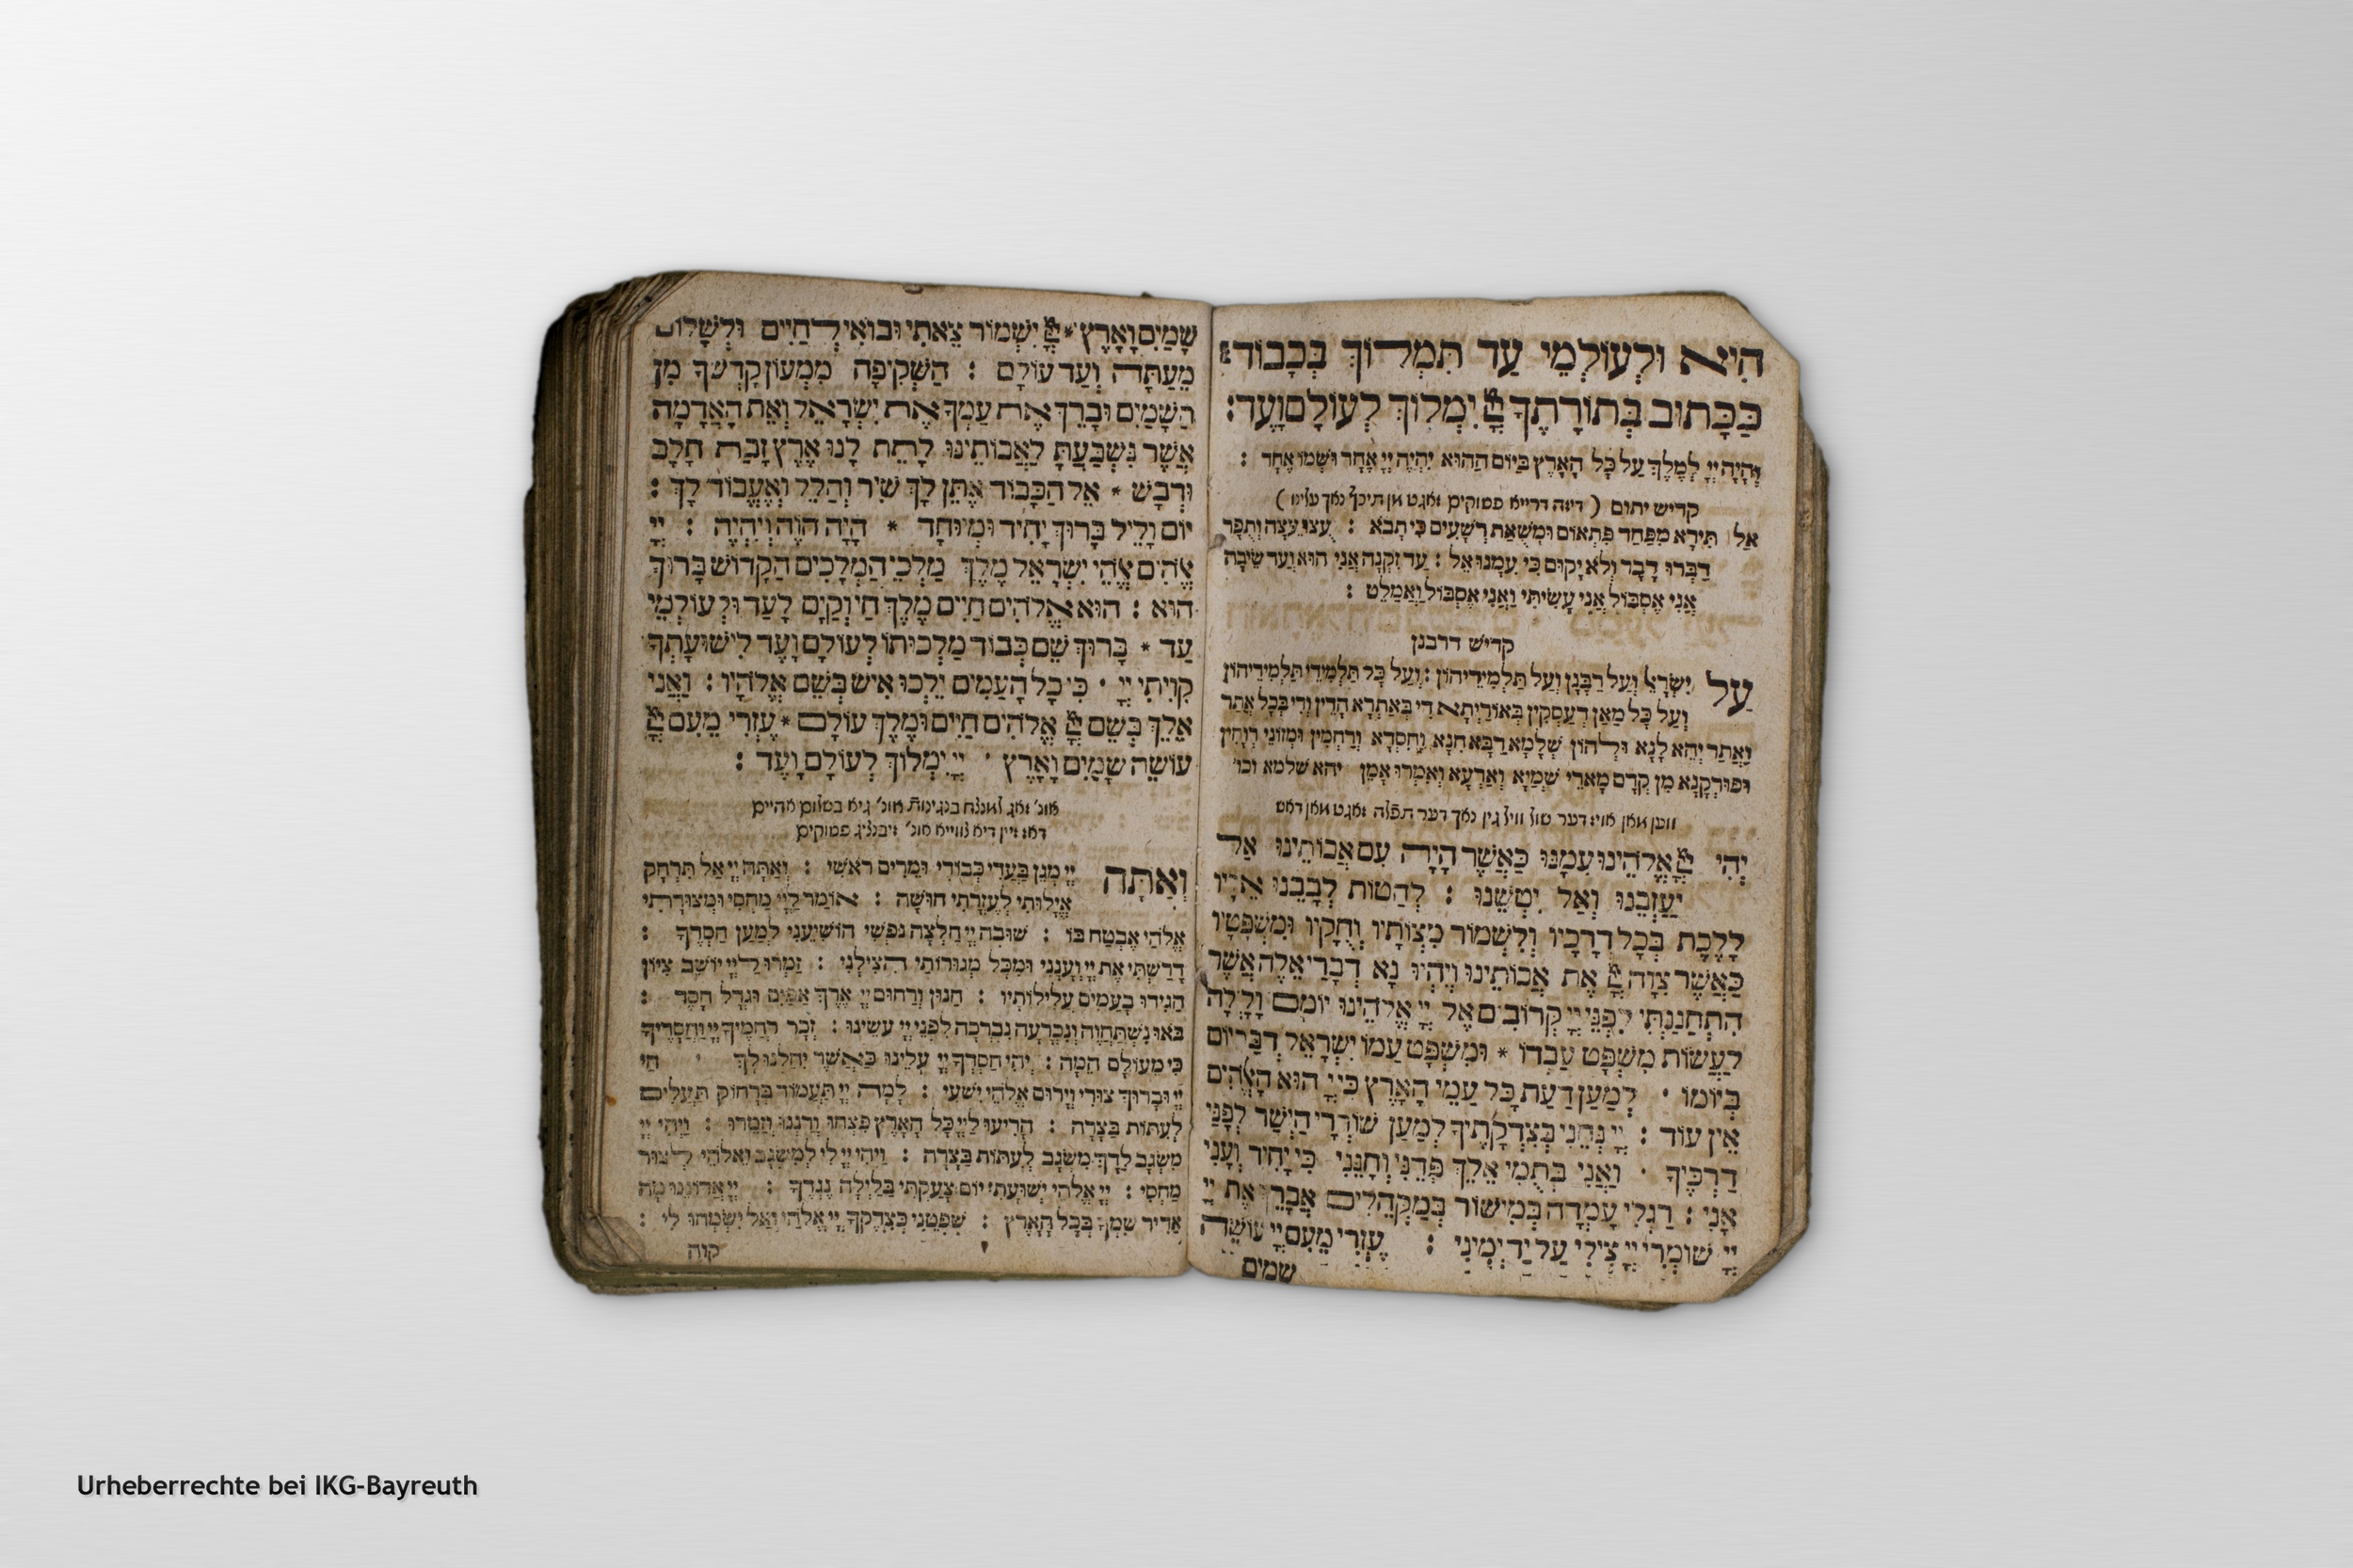 הִיא וּלְעוֹלְמֵי עַד תִּמְלוֹךְ בְּכָבוֹד :
כַּכָּתוּב בְּתוֹרָתֶךָ יְיָ יִמְלוֹךְ לְעוֹלָם וָעֶד :
וְהָיָה יְיָ לְמֶלֶךְ עַל כָּל הָאָרֶץ בַּיּוֹם הַהוּא יִהְיֶה יְיָ אֶחָד וּשְׁמוֹ אֶחָד :
קדיש יתום ( דיזה דרייא פסוקים זאגט מן תיכף נאך עלינו )
אַל תִּירָא מִפַּחַד פִּתְאוֹם וּמִשֹּׁאַת רְשָׁעִים כִּי תָבֹא : עֻצוּ עֵצָה וְתֻפָר
דַּבְּרוּ דָבָר וְלֹא יָקוּם כִּי עִמָּנוּ אֵל : עַד זִקְנָה אֲנִי הוּא וְעַד שֵׂיבָה
אֲנִי אֶסְבּוֹל אֲנִי עָשִׂיתִי וַאֲנִי אֶסְבּוֹל וַאֲמַלֵּט :
קדיש דרבנן
עַל יִשְׂרָאֵל וְעַל רַבָּנָן וְעַל תַּלְמִידֵיהוֹן : וְעַל כָּל תַּלְמִידֵי תַלְמִידֵיהוֹן
וְעַל כָּל מַאן דְּעָסְקִין בְּאוֹרַיְתָא דִּי בְּאַתְרָא הָדֵין וְדִי בְּכָל אֲתַר
וַאֲתַר יְהֵא לָנָא וּלְהוֹן שְׁלָמָא רַבָּא חִנָּא וְחִסְדָּא וְרַחֲמִין וּמְזוֹנֵי רְוִחִין
וּפוּרְקָנָא מִן קֳדָם מָארֵי שְׁמַיָּא וְאַרְעָא וְאִמְרוּ אָמֵן יהא שלמא וכו'
ווען מאן אויז דער שול וויל גין נאך דער תפלה זאגט מאן דאש
יְהִי יְיָ אֱלֹהֵינוּ עִמָּנוּ כַּאֲשֶׁר הָיָה עִם אֲבוֹתֵינוּ אַל
יַעַזְבֵנוּ וְאַל יִטְּשֵׁנוּ : לְהַטּוֹת לְבָבֵנוּ אֵלָיו
לָלֶכֶת בְּכָל דְּרָכָיו וְלִשְׁמוֹר מִצְוֹתָיו וְחֻקָּיו וּמִשְׁפָּטָיו
כַּאֲשֶׁר צִוָּה יְיָ אֶת אֲבוֹתֵינוּ וְיִהְיוּ נָא דְבָרַי אֵלֶּה אֲשֶׁר
הִתְחַנַּנְתִּי לִפְנֵי יְיָ קְרוֹבִים אֶל יְיָ אֱלֹהֵינוּ יוֹמָם וָלָיְלָה
לַעֲשׂוֹת מִשְׁפַּט עַבְדּוֹ * וּמִשְׁפַּט עַמּוֹ יִשְׂרָאֵל דְּבַר יוֹם
בְּיוֹמוֹ · לְמַעַן דַּעַת כָּל עַמֵּי הָאָרֶץ כִּי יְיָ הוּא הָאֱלֹהִים
אֵין עוֹד : יְיָ נְחֵנִי בְצִדְקָתֶיךָ לְמַעַן שׁוֹרְרָי הַיְשַׁר לְפָנַי
דַּרְכֶּיךָ · וַאֲנִי בְּתֻמִּי אֵלֵךְ פְּדֵנִי וְחָנֵּנִי כִּי יָחִיד וְעָנִי
אָנִי : רַגְלִי עָמְדָה בְמִישׁוֹר בְּמַקְהֵלִים אֲבָרֵךְ אֶת יְיָ
יְיָ שׁוֹמְרִי יְיָ צִילִי עַל יַד יְמִינִי : עֶזְרִי מֵעִם יְיָ עוֹשֵׂה
שמים
שָׁמַיִם וָאָרֶץ * יְיָ יִשְׁמוֹר צֵאתִי וּבוֹאִי לְחַיִּים וּלְשָׁלוֹם
מֵעַתָּה וְעַד עוֹלָם : הַשְׁקִיפָה מִמְּעוֹן קָדְשְׁךָ מִן
הַשָּׁמַיִם וּבָרֵךְ אֶת עַמְּךָ אֶת יִשְׂרָאֵל וְאֵת הָאֲדָמָה
אֲשֶׁר נִשְׁבַּעְתָּ לַאֲבוֹתֵינוּ לָתֵת לָנוּ אֶרֶץ זָבַת חָלָב
וּדְבָשׁ * אֵל הַכָּבוֹד אֶתֵּן לָךְ שִׁיר וְהַלֵּל וְאֶעֱבוֹד לָךְ :
יוֹם וָלֵיל בָּרוּךְ יָחִיד וּמְיוּחָד * הָיָה הֹוֶה וְיִהְיֶה : יְיָ
אֱלֹהִים אֱלֹהֵי יִשְׂרָאֵל מֶלֶךְ מַלְכֵי הַמְּלָכִים הַקָּדוֹשׁ בָּרוּךְ
הוּא : הוּא אֱלֹהִים חַיִּים מֶלֶךְ חַי וְקַיָּם לָעַד וּלְעוֹלְמֵי
עַד * בָּרוּךְ שֵׁם כְּבוֹד מַלְכוּתוֹ לְעוֹלָם וָעֶד לִישׁוּעָתְךָ
קִוִּיתִי יְיָ · כִּי כָל הָעַמִּים יֵלְכוּ אִישׁ בְּשֵׁם אֱלֹהָיו : וַאֲנִי
אֵלֵךְ בְּשֵׁם יְיָ אֱלֹהִים חַיִּים וּמֶלֶךְ עוֹלָם * עֶזְרִי מֵעִם יְיָ
עוֹשֵׂה שָׁמַיִם וָאָרֶץ · יְיָ יִמְלוֹךְ לְעוֹלָם וָעֶד :
אונ' זאג למנצח בנגינות אונ' גיא בשלום אהיים
דאז זיין דיא צווייא אונ' זיבנציג פסוקים
וְאַתָּה יְיָ מָגֵן בַּעֲדִי כְּבוֹדִי וּמֵרִים רֹאשִׁי : וְאַתָּה יְיָ אַל תִּרְחָק
אֱיָלוּתִי לְעֶזְרָתִי חוּשָׁה : אוֹמַר לַיְיָ מַחְסִי וּמְצוּדָתִי
אֱלֹהַי אֶבְטַח בּוֹ : שׁוּבָה יְיָ חַלְּצָה נַפְשִׁי הוֹשִׁיעֵנִי לְמַעַן חַסְדֶּךָ :
דָּרַשְׁתִּי אֶת יְיָ וְעָנָנִי וּמִכָּל מְגוּרוֹתַי הִצִּילָנִי : זַמְּרוּ לַיְיָ יוֹשֵׁב צִיּוֹן
הַגִּידוּ בָעַמִּים עֲלִילוֹתָיו : חַנּוּן וְרַחוּם יְיָ אֶרֶךְ אַפַּיִם וּגְדָל חָסֶד :
בֹּאוּ נִשְׁתַּחֲוֶה וְנִכְרָעָה נִבְרְכָה לִפְנֵי יְיָ עֹשֵׂינוּ : זְכֹר רַחֲמֶיךָ יְיָ וַחֲסָדֶיךָ
כִּי מֵעוֹלָם הֵמָּה : יְהִי חַסְדְּךָ יְיָ עָלֵינוּ כַּאֲשֶׁר יִחַלְנוּ לָךְ · חַי
יְיָ וּבָרוּךְ צוּרִי וְיָרוּם אֱלֹהֵי יִשְׁעִי : לָמָה יְיָ תַּעֲמוֹד בְּרָחוֹק תַּעְלִים
לְעִתּוֹת בַּצָּרָה : הָרִיעוּ לַיְיָ כָּל הָאָרֶץ פִּצְחוּ וְרַנְּנוּ וְזַמֵּרוּ : וִיהִי יְיָ
מִשְׂגָּב לַדָּךְ מִשְׂגָּב לְעִתּוֹת בַּצָּרָה : וַיְהִי יְיָ לִי לְמִשְׂגָּב וֵאלֹהַי לְצוּר
מַחְסִי : יְיָ אֱלֹהֵי יְשׁוּעָתִי יוֹם צָעַקְתִּי בַלַּיְלָה נֶגְדֶּךָ : יְיָ אֲדוֹנֵנוּ מָה
אַדִּיר שִׁמְךָ בְּכָל הָאָרֶץ : שָׁפְטֵנִי כְצִדְקְךָ יְיָ אֱלֹהַי וְאַל יִשְׂמְחוּ לִי :
קוה
Urheberrechte bei IKG-Bayreuth